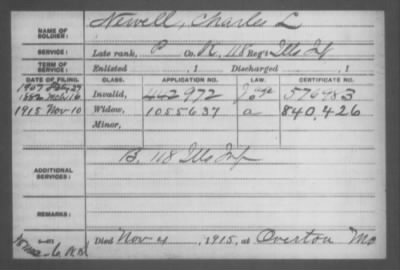 NAME OF SOLDIER: Newell, Charles L
SERVICE: Late rank, P Co. K, 118 Reg't Ills Inf
TERM OF SERVICE: Enlisted , 1 Discharged , 1
DATE OF FILING. CLASS. APPLICATION NO. LAW. CERTIFICATE NO.
1907 Feb 27
1882 Mch 16 Invalid, 442972 J age 576983
1915 Nov 10 Widow, 1055637 a 840,426
Minor,
ADDITIONAL SERVICES: B. 118 Ills Inf
REMARKS:
Died Nov 4 , 1915, at Overton Mo